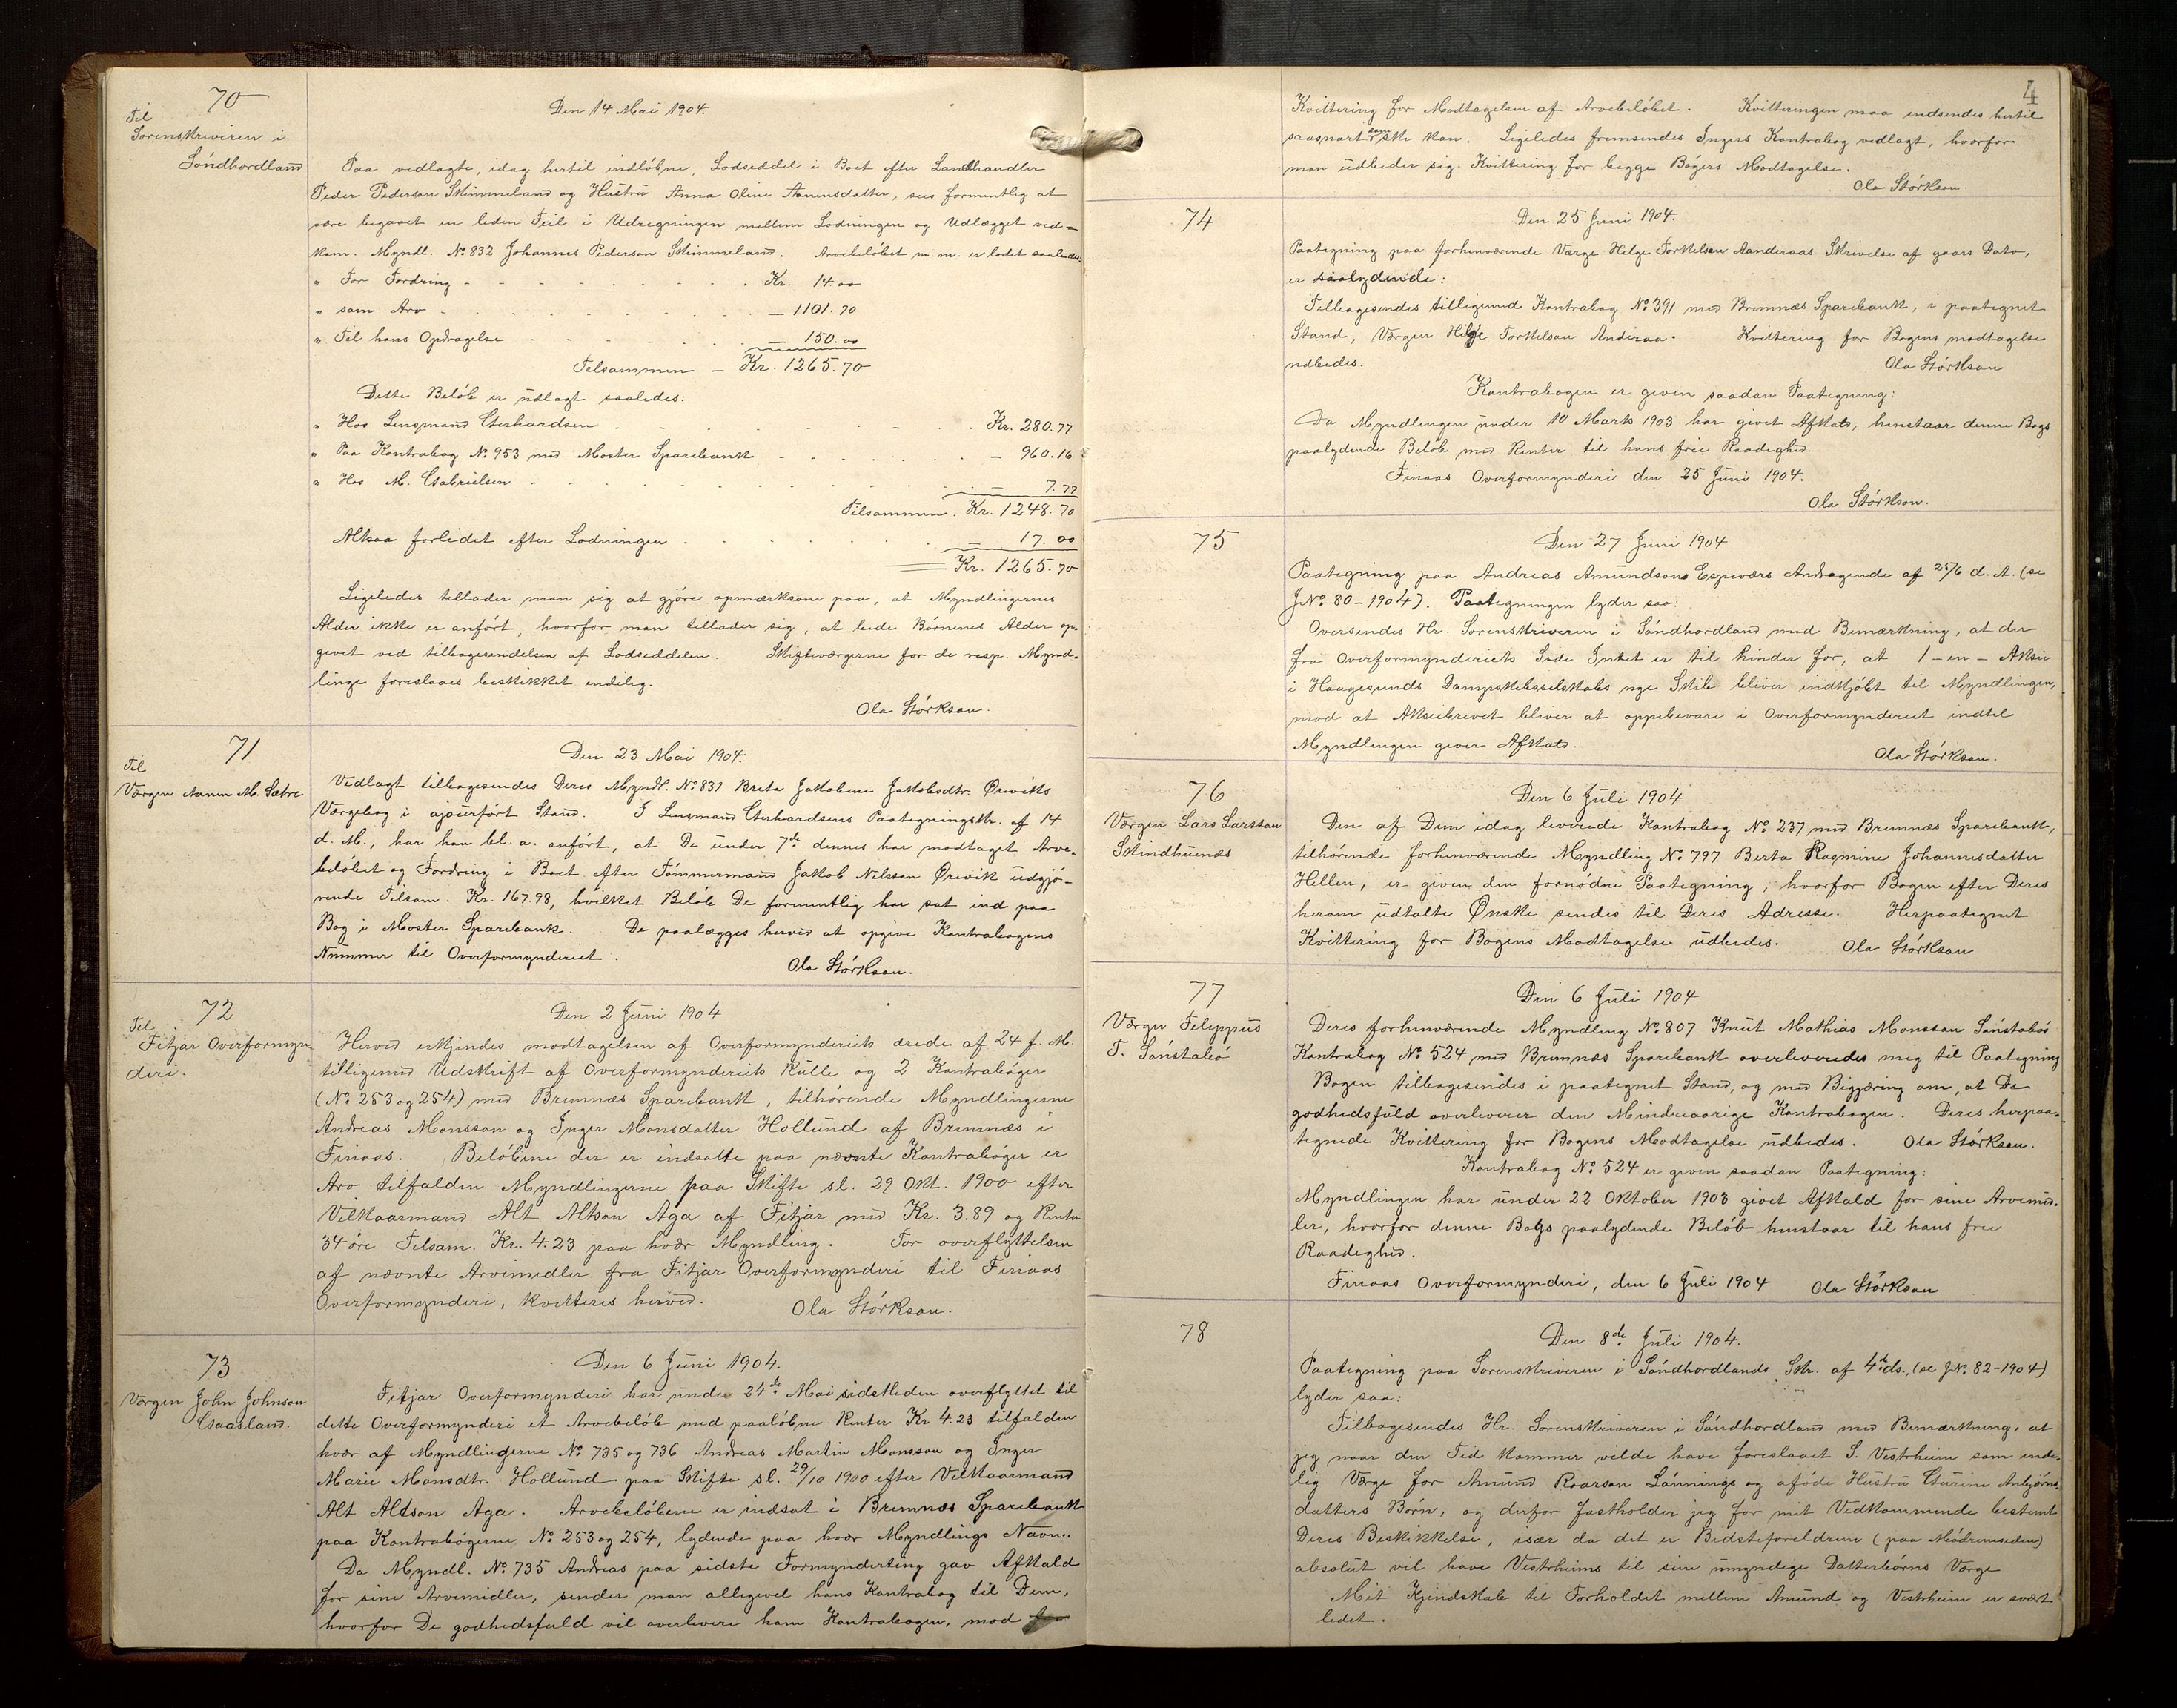 70
Til
Sorenskriveren i
Söndhordland
Den 14 Mai 1904.
Paa vedlagte, idag hertil indløbne, Lodseddel i Boet efter Landhandler
Peder Pederson Skimmeland og Hustru Anna Oline Aamundsdatter, sees formentlig at
være begaaet en liden Feil i Udregningen mellem Lodningen og Udlægget ved-
kom. Myndl. No 832 Johannes Pederson Skimmeland. Arvebeløbet m.m. er lodet saaledes:
" For Fordring - Kr. 14.00
" som Arv - 1101.70
" Til hans Opdragelse - 150.00
Tilsammen - Kr. 1265.70
Dette Beløb er udlagt saaledes:
" Hos Lensmand Gerhardsen Kr. 280.77
" Paa Kontrabog No 953 med Moster Sparebank - 960.16
" Hos M. Gabrielsen - 7.77
Tilsammen. Kr. 1248.70
Altsaa forlidet efter Lodningen - 17.00
Kr. 1265.70
Ligeledes tillader man sig at gjøre opmærksom paa, at Myndlingernes
Alder ikke er anført, hvorfor man tillader sig, at bede Børnenes Alder op-
givet ved tilbagesendelsen af Lodseddelen. Skifteværgerne for de resp. Mynd-
linge foreslaaes beskikket endelig.
Ola Störkson.
71
Til
Værgen Aamu M. Sætre
Den 23 Mai 1904.
Vedlagt tilbagesendes Deres Myndl. No 831 Brita Jakobine Jakobsdtr. Øreviks
Værgebog i ajourført Stand. I Lensmand Gerhardsens Paategningskr. af 14
d. M., har han bl. a. anført, at De under 7de dennes har modtaget Arve-
beløbet og Fordring i Boet efter Tömmermand Jakob Nilsson Ørevik udgjø-
rende Tilsam. Kr. 167.98, hvilket Beløb De formentlig har sat ind paa
Bog i Moster Sparebank. De paalægges herved at opgive Kontrabogens
Nummer til Overformynderiet.
Ola Störkson.
72
Til
Fitjar Overformyn-
deri.
Den 2 Juni 1904
Herved erkjendes modtagelsen af Overformynderiets ærede af 24 f. M.
tilligemed Udskrift af Overformynderiets Rulle og 2 Kontrabøger
(No 253 og 254) med Bremnæs Sparebank, tilhørende Myndlingerne
Andreas Monsson og Inger Monsdatter Hollund af Bremnæs i
Finaas. Beløbene der er indsatte paa nævnte Kontrabøger er
Arv tilfalden Myndlingerne paa Skifte sl. 29 Okt. 1900 efter
Vilkaarmand Alt Altson Aga af Fitjar med Kr. 3.89 og Renter
34 øre Tilsam. Kr. 4.23 paa hvær Myndling. For overflyttelsen
af nævnte Arvemidler fra Fitjar Overformynderi til Finaas
Overformynderi, kvitteres herved.
Ola Störkson.
73
Værgen John Johnson
Gaasland.
Den 6 Juni 1904.
Fitjar Overformynderi har under 24de Mai sidstleden overflyttet til
dette Overformynderi et Arvebeløb med paaløbne Renter Kr 4.23 tilfalden
hvær af Myndlingerne No 735 og 736 Andreas Martin Monsson og Inger
Marie Monsdtr. Hollund paa Skifte sl. 29/10 1900 efter Vilkaarmand
Alt Altson Aga. Arvebeløbene er indsat i Bremnæs Sparebank
paa Kontrabøgerne No 253 og 254, lydende paa hvær Myndlings Navn.
Da Myndl. No 735 Andreas paa sidste Formynderting gav Afkald
for sine Arvemidler, sender man alligevel hans Kontrabog til Dem,
hvorfor De godhedsfuld vil overlevere ham Kontrabogen, mod
4
Kvittering for Modtagelsen af Arvebeløbet. Kvitteringen maa indsendes hertil
saasnart som ske kan. Ligeledes fremsendes Ingers Kontrabog vedlagt, hvorfor
man udbeder sig Kvittering for begge Bøgers Modtagelse.
Ola Störkson.
74
Den 25 Juni 1904.
Paategning paa forhenværende Værge Helge Torkelsen Aanderaas Skrivelse af gaars Dato,
er saalydende:
Tilbagesendes tilligemed Kontrabog No 391 med Bremnæs Sparebank, i paategnet
Stand, Værgen Helge Torkelson Anderaa. Kvittering for Bogens modtagelse
udbedes.
Ola Störkson
Kontrabogen er given saadan Paategning:
Da Myndlingen under 10 Marts 1903 har givet Afkald, henstaar denne Bogs
paalydende Beløb med Renter til hans frie Raadighed.
Finaas Overformynderi den 25 Juni 1904.
Ola Störkson.
75
Den 27 Juni 1904
Paategning paa Andreas Amundsons Espeværs Andragende af 25/6 d. A. (se
JNo 80-1904). Paategningen lyder saa:
Oversendes Hr. Sorenskriveren i Söndhordland med Bemærkning, at der
fra Overformynderiets Side Intet er til hinder for, at 1 - en - Aksie
i Haugesunds Dampskibsselskabs nye Skib bliver indkjøbt til Myndlingen,
mod at Aksiebrevet bliver at oppebevare i Overformynderiet indtil
Myndlingen giver Afkald.
Ola Störkson.
76
Værgen Lars Larsson
Skindhuenæs
Den 6 Juli 1904
Den af Dem idag leverede Kontrabog No 237 med Bremnæs Sparebank,
tilhörende forhenværende Myndling No 797 Berta Rasmine Johannesdatter
Hellen, er given den fornödne Paategning, hvorfor Bogen efter Deres
herom udtalte Ønske sendes til Deres Adresse. Herpaategnet
Kvittering for Bogens Modtagelse udbedes.
Ola Störkson
77
Værgen Filippus
T. Sönstabö
Den 6 Juli 1904
Deres forhenværende Myndling No 807 Knut Mathias Monsson Sönstabös
Kontrabog No 524 med Bremnæs Sparebank overleveredes mig til Paategning
Bogen tilbagesendes i paategnet Stand, og med Begjæring om, at De
godhedsfuld overleverer den Mindreaarige Kontrabogen. Deres herpaa-
tegnede Kvittering for Bogens Modtagelse udbedes. Ola Störkson.
Kontrabog No 524 er given saadan Paategning:
Myndlingen har under 22 Oktober 1903 givet Afkald for sine Arvemid-
ler, hvorfor denne Bogs paalydende Beløb henstaar til hans frie
Raadighed.
Finaas Overformynderi, den 6 Juli 1904 Ola Störkson
78
Den 8de Juli 1904.
Paategning paa Sorenskriveren i Söndhordlands Skr. af 4de ds., (se JNo 82-1904)
lyder saa:
Tilbagesendes Hr. Sorenskriveren i Söndhordland med Bemærkning, at
jeg naar den Tid kommer vilde have foreslaaet S. Vestrheim som ende-
lig Værge for Amund Roarson Lönnings og afdöde Hustru Gurine Anbjørns-
datters Børn, og derfor fastholder jeg for mit Vedkommende bestemt
Deres Beskikkelse, især da det er Bedsteforeldrene (paa Mödrenesiden)
absolut vil have Vestrheim til sine umyndige Datterbørns Værge
Mit Kjendskab til Forholdet mellem Amund og Vestrheim er svært
lidet.